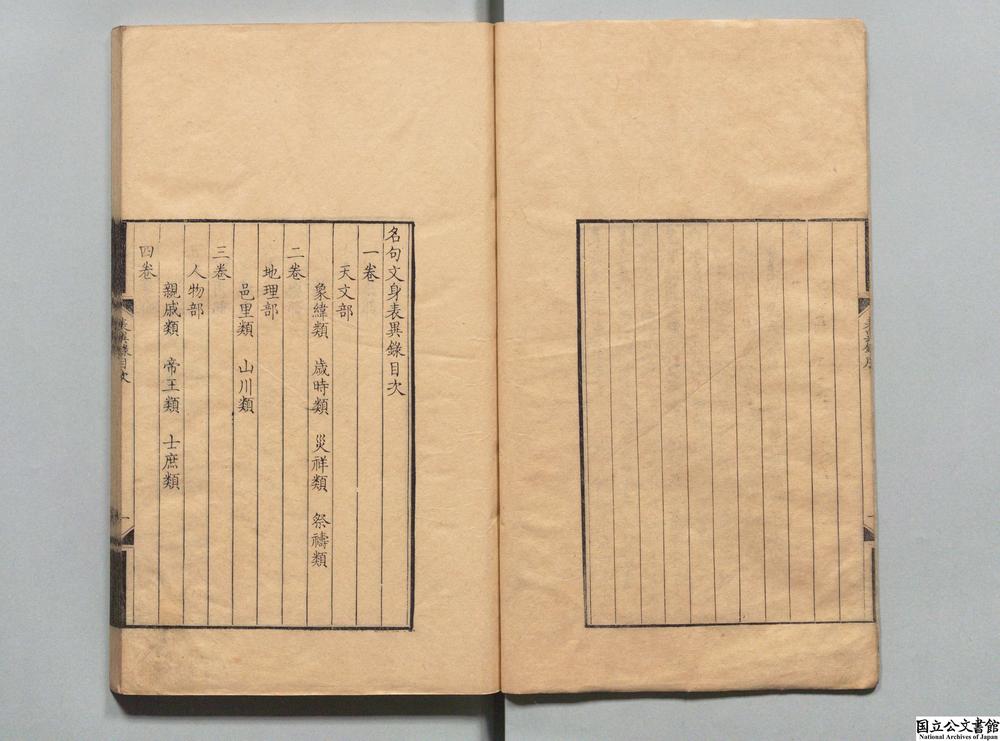 名句文身表異錄目次
一卷
天文部
象緯類　歲時類　災祥類　祭禱類
二卷
地理部
邑里類　山川類
三卷
人物部
親戚類　帝王類　士庶類
四卷
表異錄目次
一
国立公文書館
National Archives of Japan